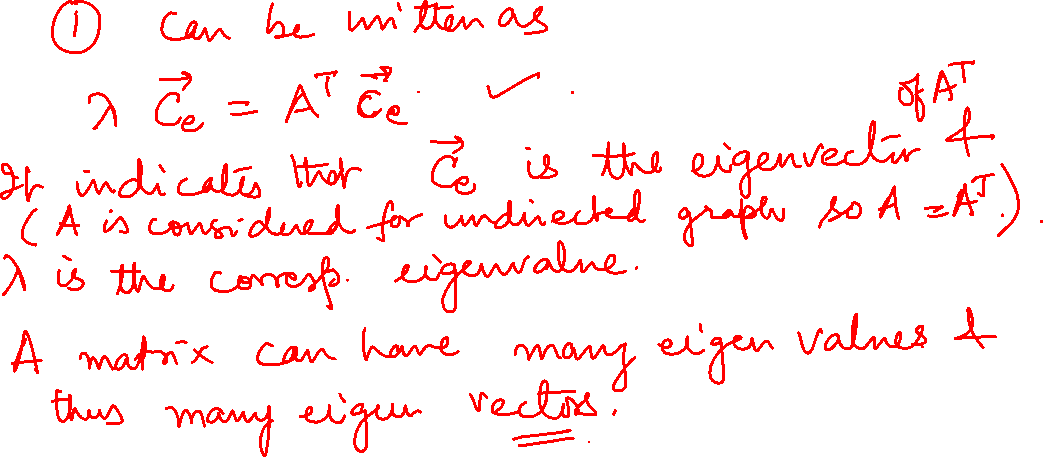 ① can be written as
λ C⃗e = Aᵀ C⃗e. ✓ .
of Aᵀ
It indicates that C⃗e is the eigenvector &
(A is considered for undirected graph so A = Aᵀ.).
λ is the corresp. eigenvalue.
A matrix can have many eigen values &
thus many eigen vectors.